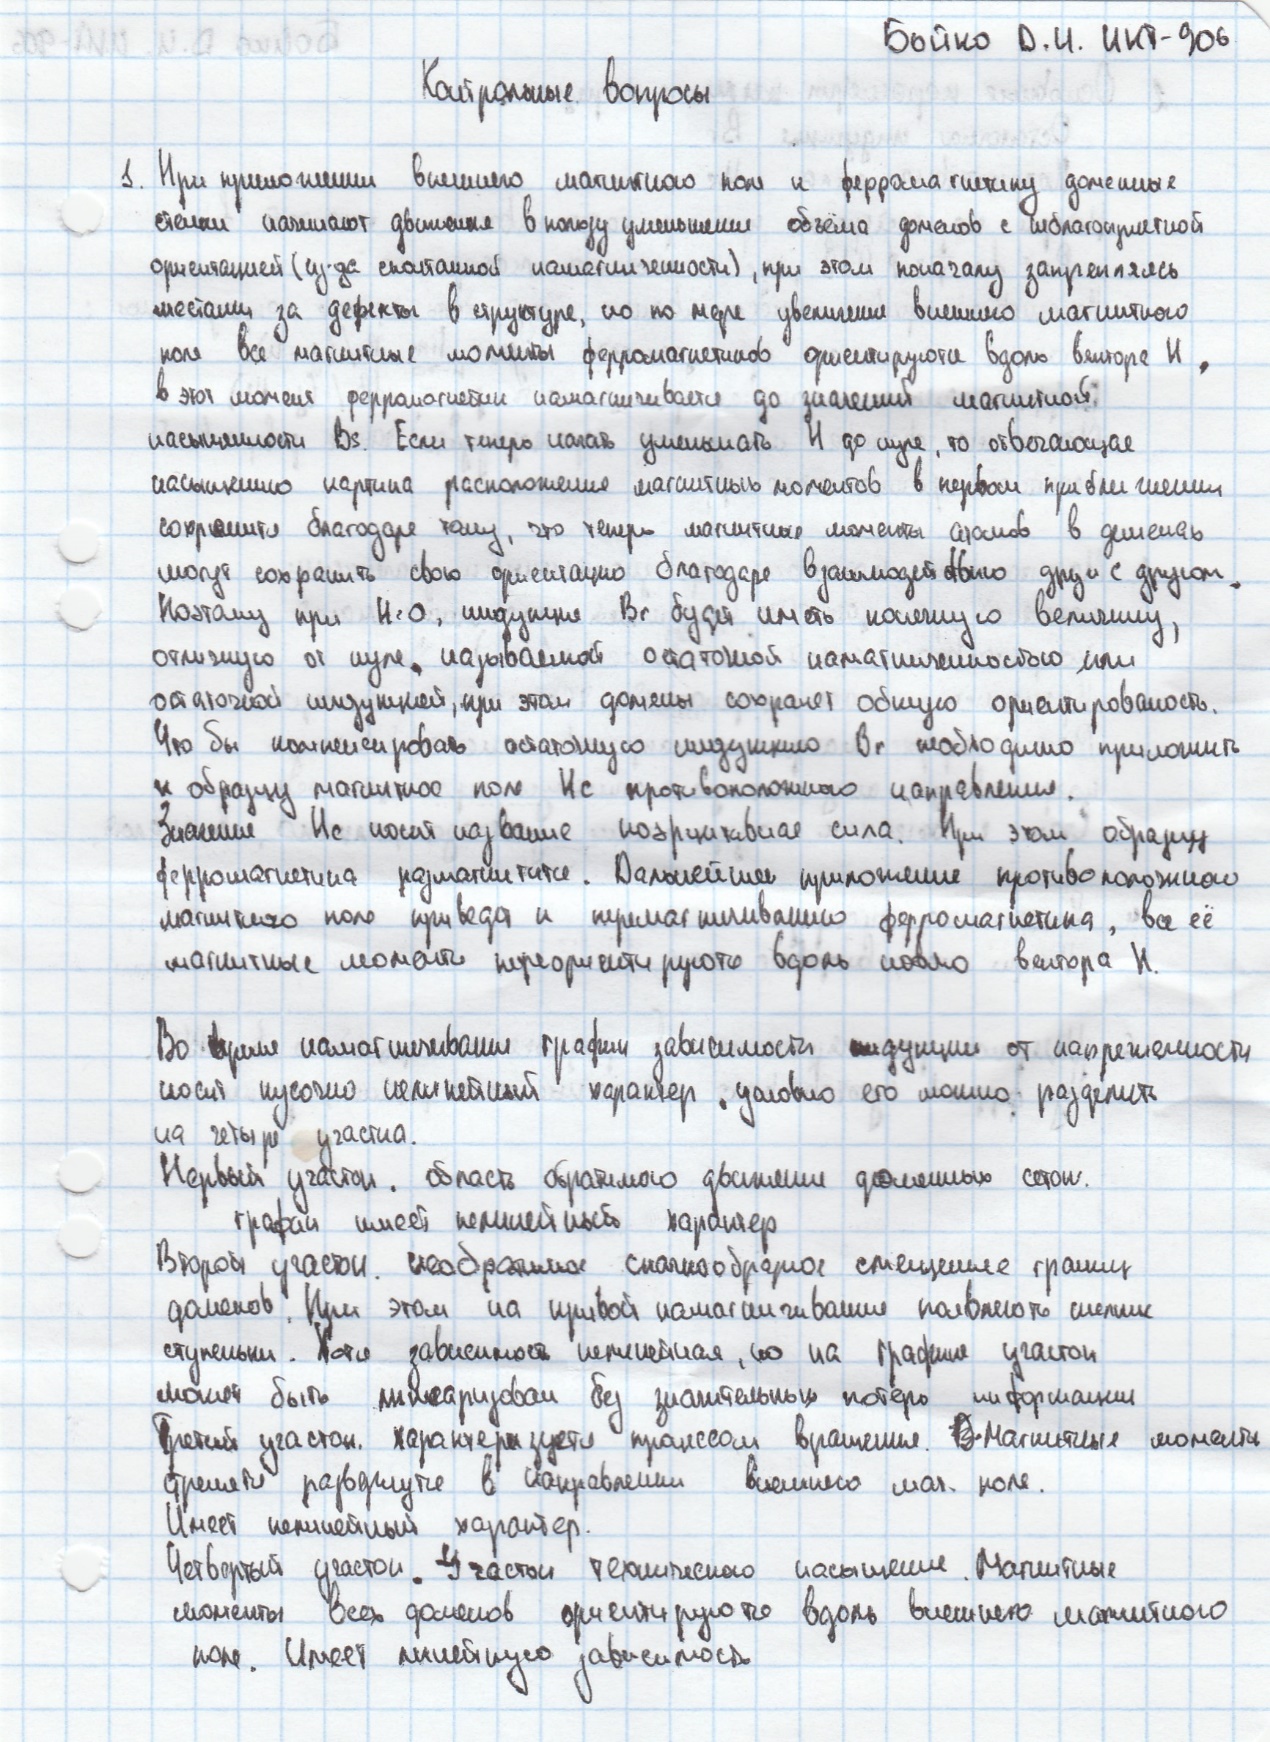 Бойко Д.И. ИКТ-906
Контрольные вопросы
1. При приложении внешнего магнитного поля к ферромагнетику доменные
стенки начинают движения в пользу уменьшения объёма доменов с неблагоприятной
ориентацией (из-за спонтанной намагниченности), при этом поначалу закрепляясь
местами за дефекты в структуре, но по мере увеличения внешнего магнитного
поля все магнитные моменты ферромагнетиков ориентируются вдоль вектора H,
в этот момент ферромагнетик намагничивается до значений магнитной
насыщенности Bs. Если теперь начать уменьшать H до нуля, то отвечающая
насыщению картина расположения магнитных моментов в первом приближении
сохранится благодаря тому, что теперь магнитные моменты атомов в доменах
могут сохранить свою ориентацию благодаря взаимодействию друг с другом.
Поэтому при H=0, индукция Br будет иметь конечную величину,
отличную от нуля, называемой остаточной намагниченностью или
остаточной индукцией, при этом домены сохранят общую ориентированость.
Что бы компенсировать остаточную индукцию Br необходимо приложить
к образцу магнитное поле Hc противоположного направления.
Значение Hc носит название коэрцитивная сила. При этом образец
ферромагнетика размагнитится. Дальнейшее приложение противоположного
магнитного поля приведёт к перемагничиванию ферромагнетика, все её
магнитные моменты переориентируются вдоль нового вектора H.
Во время намагничивания график зависимости индукции от напряженности
носит кусочно нелинейный характер, условно его можно разделить
на четыре участка.
Первый участок. область обратимого движения доменных стенок.
график имеет нелинейный характер
Второй участок. необратимое скачкообразное смещение границ
доменов. При этом на кривой намагничивания появляются мелкие
ступеньки. Хотя зависимость нелинейная, но на графике участок
может быть линеаризован без значительных потерь информации
Третий участок. Характеризуется процессом вращения. Магнитные моменты
стремятся развернуться в направлении внешнего маг. поля.
Имеет нелинейный характер.
Четвертый участок. Участок технического насыщения. Магнитные
моменты всех доменов ориентируются вдоль внешнего магнитного
поля. Имеет линейную зависимость